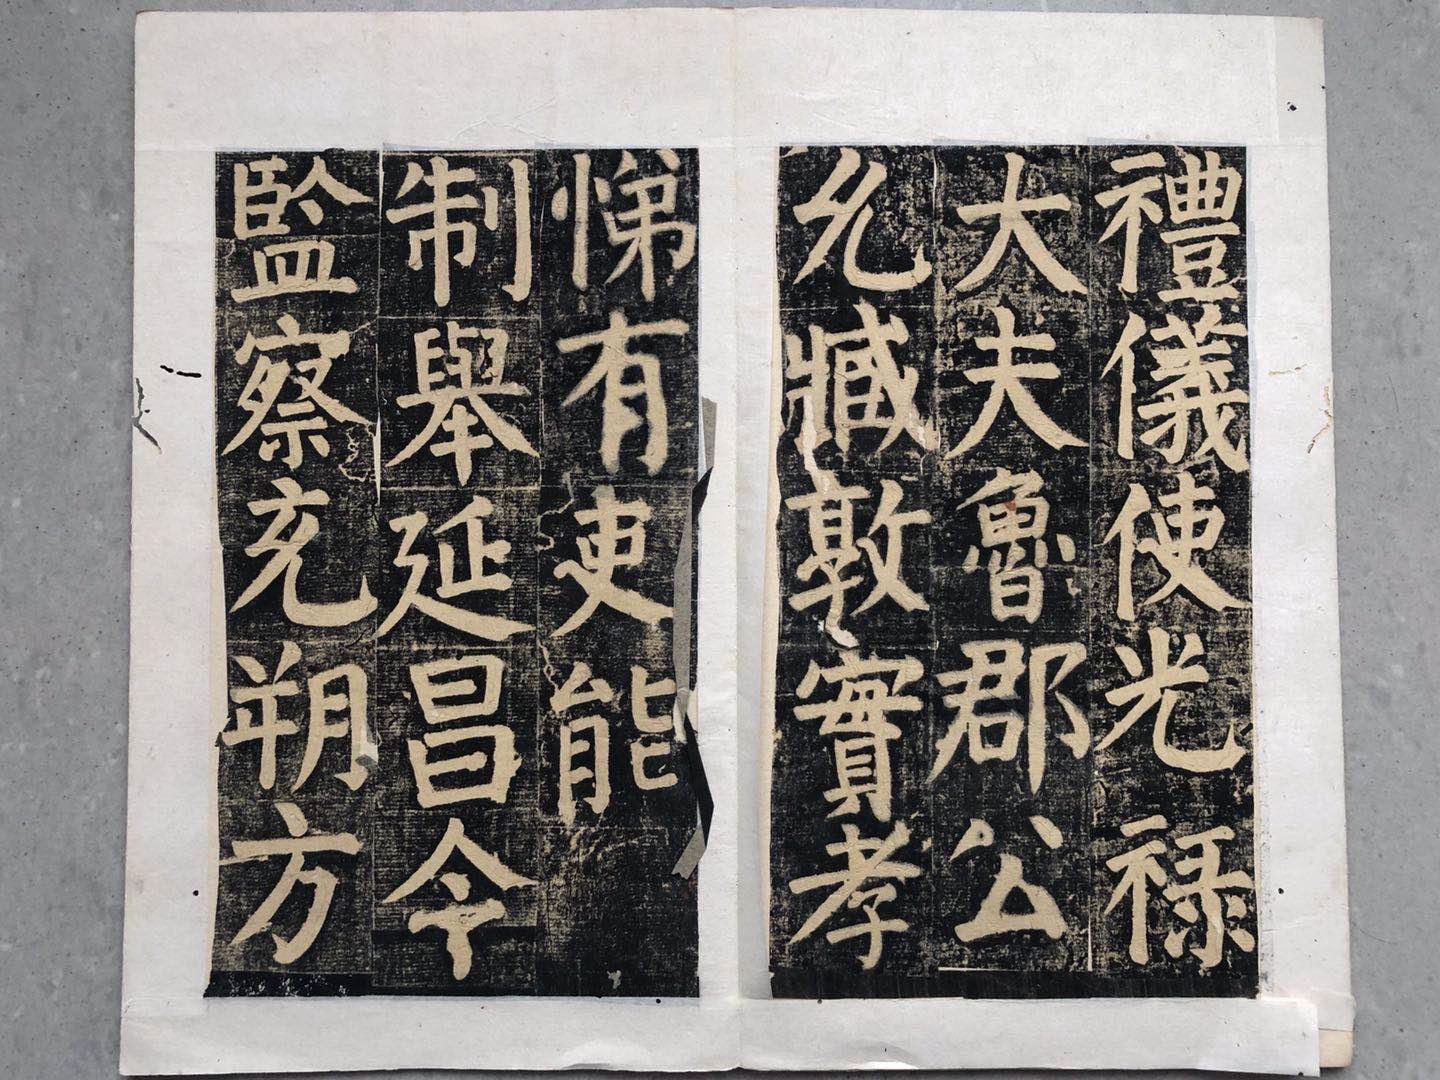 禮儀使光祿
大夫魯郡公
允臧敦實孝
悌有吏能
制舉延昌令
監察充朔方